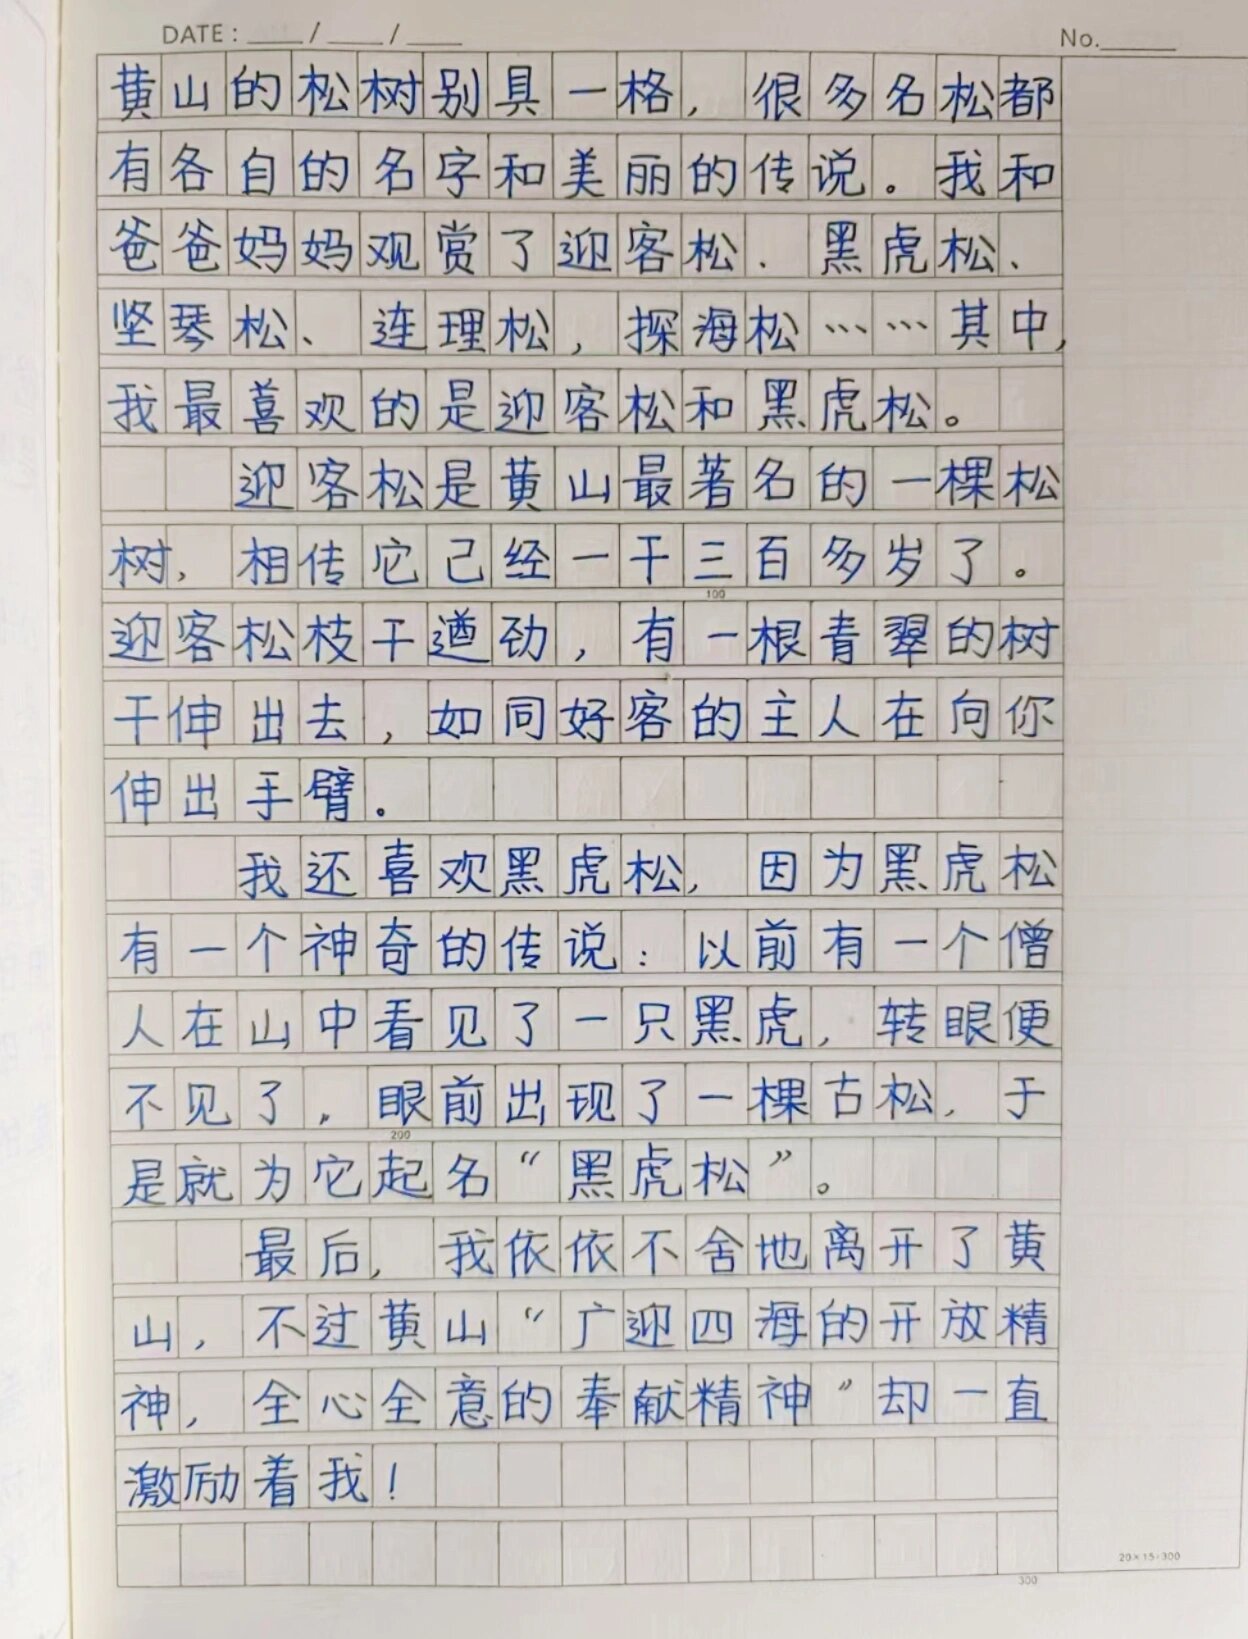 DATE：___/___/___
No.___
黄山的松树别具一格，很多名松都
有各自的名字和美丽的传说。我和
爸爸妈妈观赏了迎客松、黑虎松、
坚琴松、连理松，探海松……其中，
我最喜欢的是迎客松和黑虎松。
迎客松是黄山最著名的一棵松
树，相传它已经一千三百多岁了。
100
迎客松枝干遒劲，有一根青翠的树
干伸出去，如同好客的主人在向你
伸出手臂。
我还喜欢黑虎松，因为黑虎松
有一个神奇的传说：以前有一个僧
人在山中看见了一只黑虎，转眼便
不见了，眼前出现了一棵古松，于
200
是就为它起名“黑虎松”。
最后，我依依不舍地离开了黄
山，不过黄山“广迎四海的开放精
神，全心全意的奉献精神”却一直
激励着我！
20×15=300
300